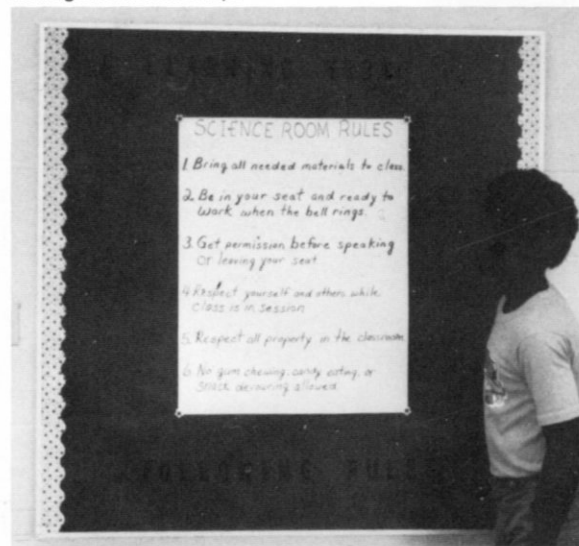 LEARNING
SCIENCE ROOM RULES
1. Bring all needed materials to class.
2. Be in your seat and ready to
work when the bell rings.
3. Get permission before speaking
or leaving your seat.
4. Respect yourself and others while
class is in session
5. Respect all property in the classroom
6. No gum chewing, candy eating, or
snack devouring allowed.
FOLLOWING RULES